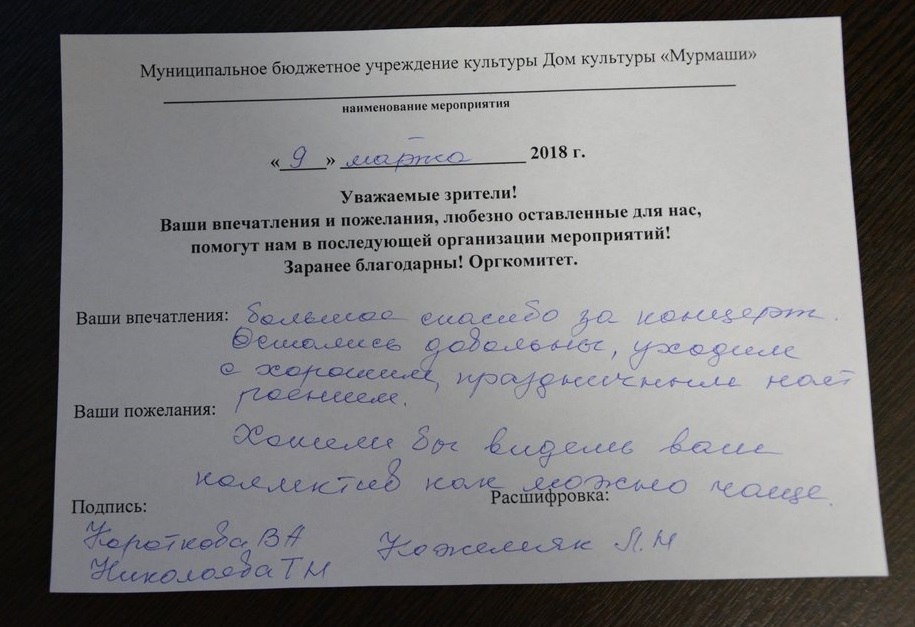 Муниципальное бюджетное учреждение культуры Дом культуры «Мурмаши»
наименование мероприятия
« 9 » марта 2018 г.
Уважаемые зрители!
Ваши впечатления и пожелания, любезно оставленные для нас,
помогут нам в последующей организации мероприятий!
Заранее благодарны! Оргкомитет.
Ваши впечатления: большое спасибо за концерт.
Остались довольны, уходим
с хорошим, праздничным наст
роением.
Ваши пожелания:
Хотели бы видеть ваш
коллектив как можно чаще.
Подпись: Расшифровка:
Короткова В А Кожемяк Л.Н
Николаева Т Н